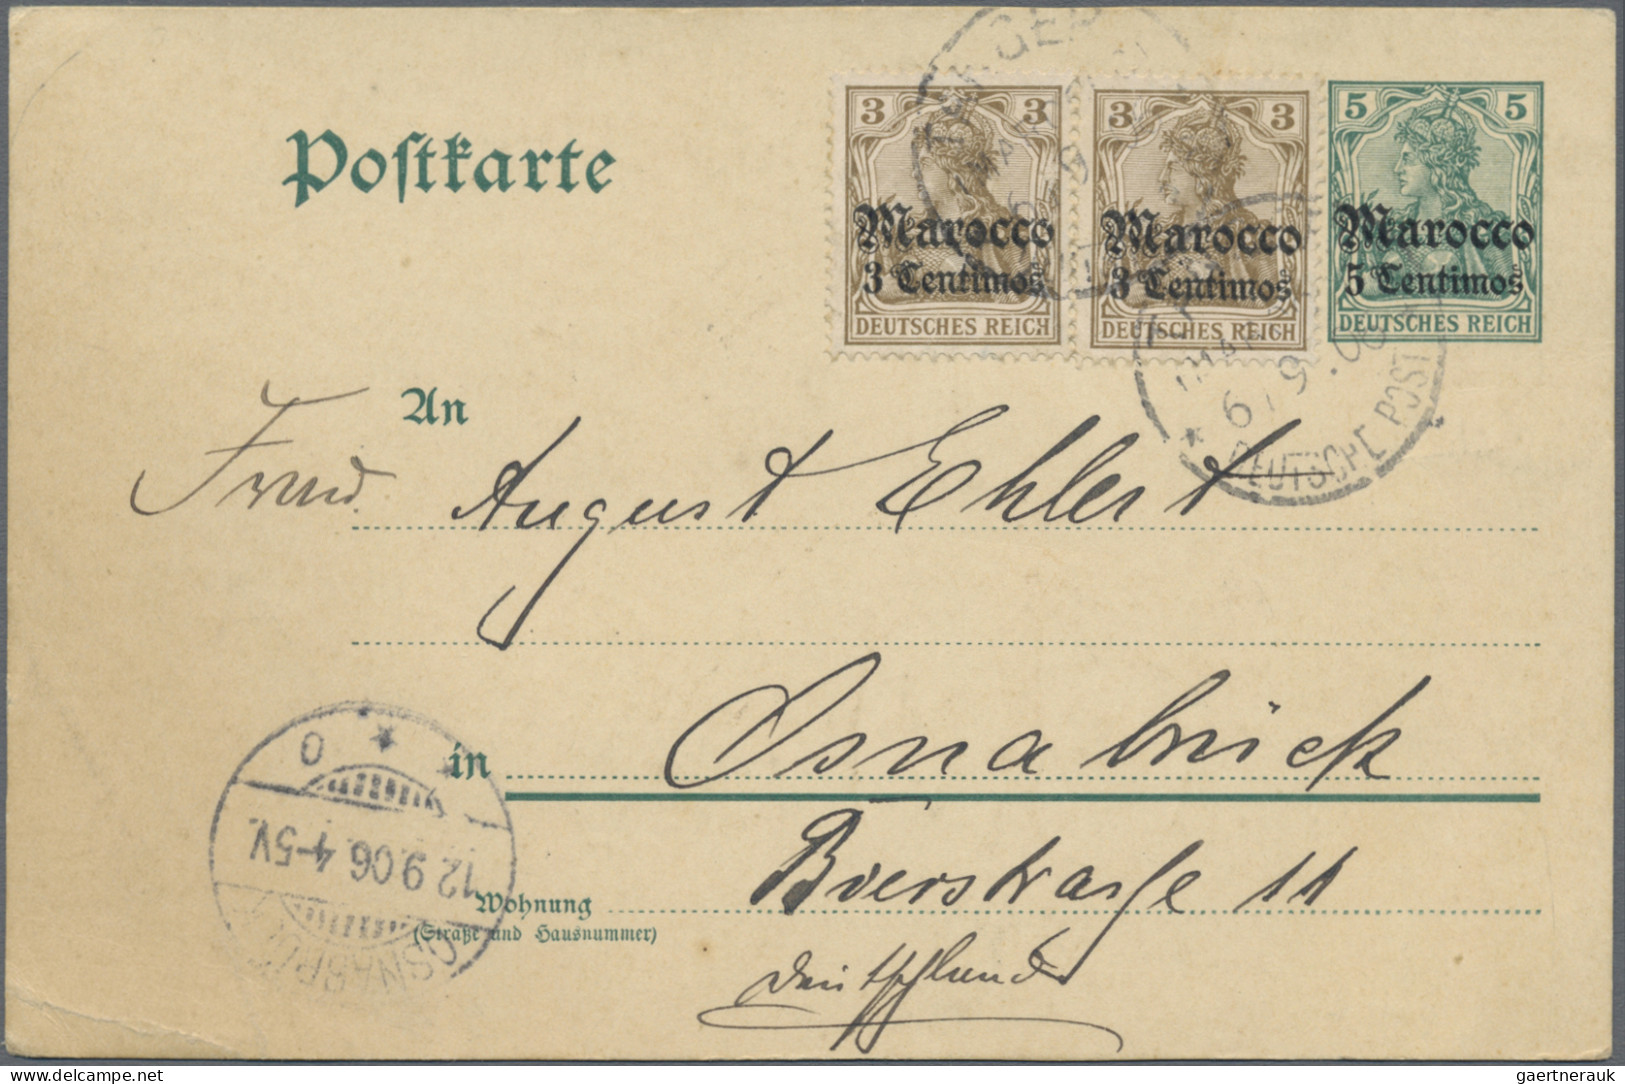 Postkarte
3 3
Marocco
3 Centimos
DEUTSCHES REICH
3 3
Marocco
3 Centimos
DEUTSCHES REICH
5 5
Marocco
5 Centimos
DEUTSCHES REICH
6/9.06
* DEUTSCHE POST
An
August Ehlert
in Osnabrück
Wohnung
(Straße und Hausnummer)
Bierstrasse 11
Deutschland
OSNABRÜCK
12.9.06.4-5V.
gaertnerauk